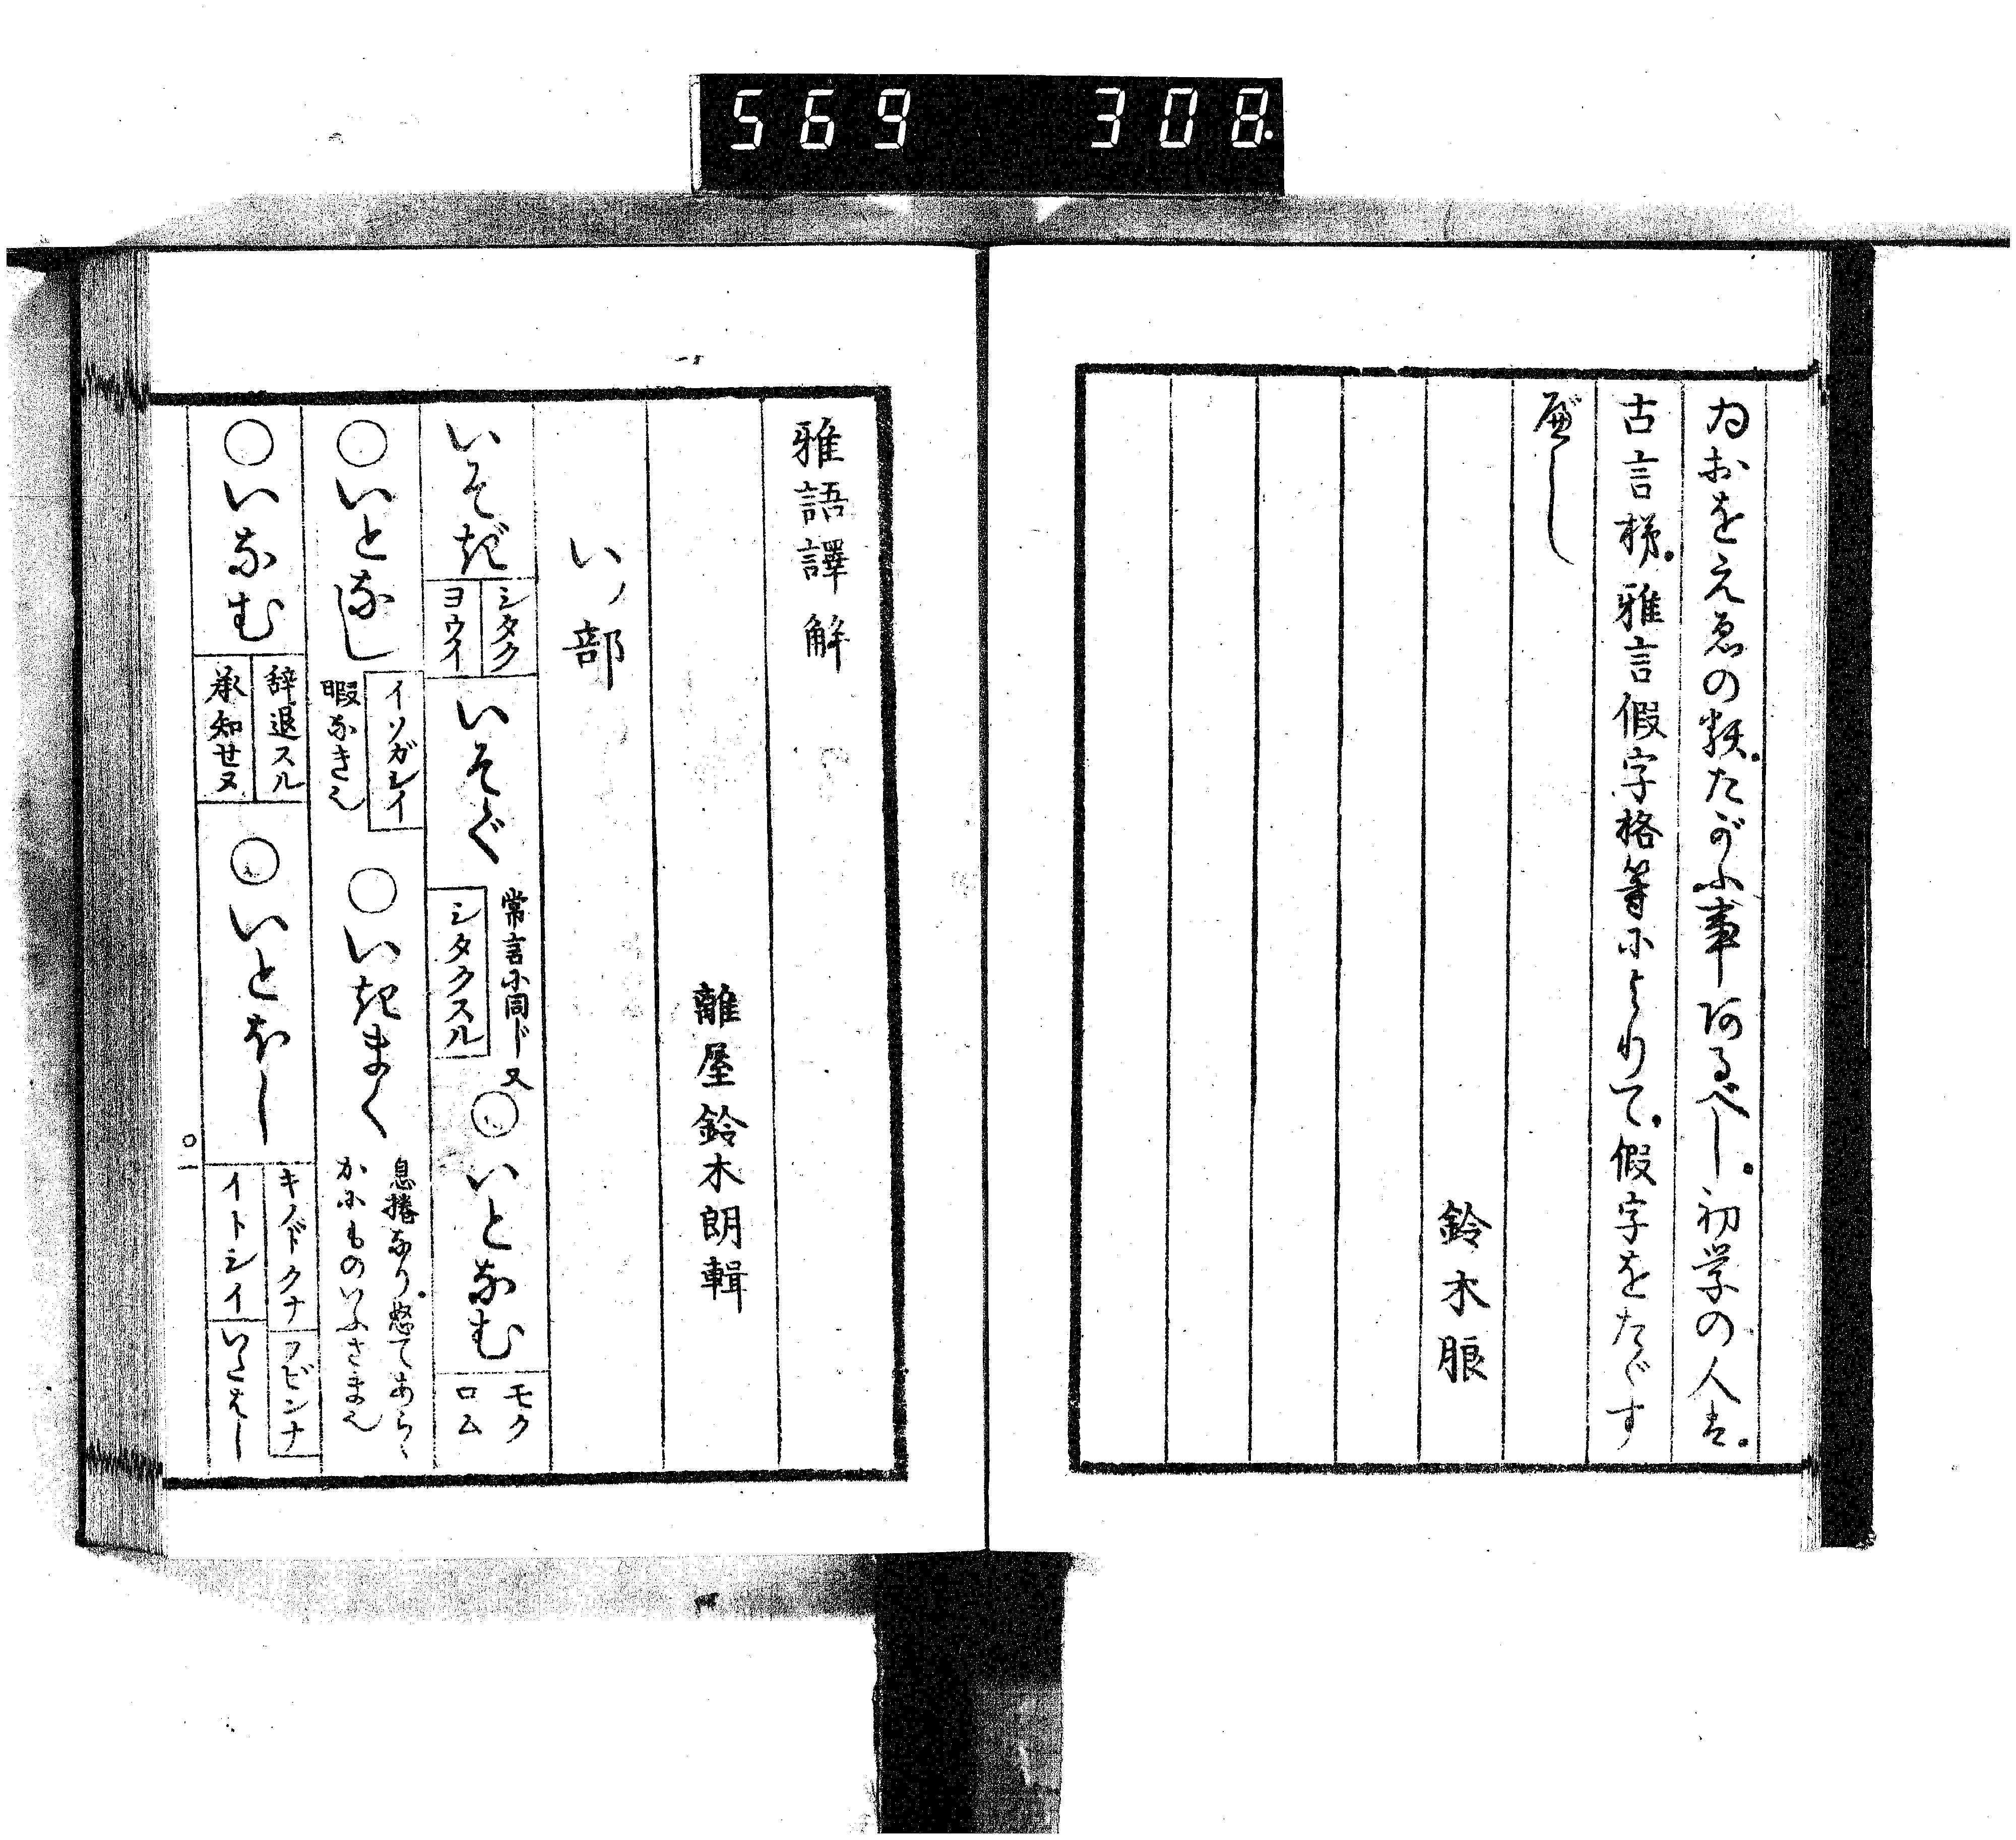 569 308.
ゐおをえゑの類。たがふ事あるべし。初学の人は。
古言梯。雅言假字格等によりて。假字をたゞす
べし
鈴木朖
雅語譯解
離屋鈴木朗輯
いノ部
いそぎ シタク ヨウイ いそぐ 常言に同ド又 シタクスル ○いとなむ モクロム
○いとなし イソガシイ 暇なき也 ○いきまく 息捲なり。怒てあらゝかにものいふさま也
○いなむ 辞退スル 承知セヌ ○いとほし キノドクナ フビンナ イトシイ いたはし
○一